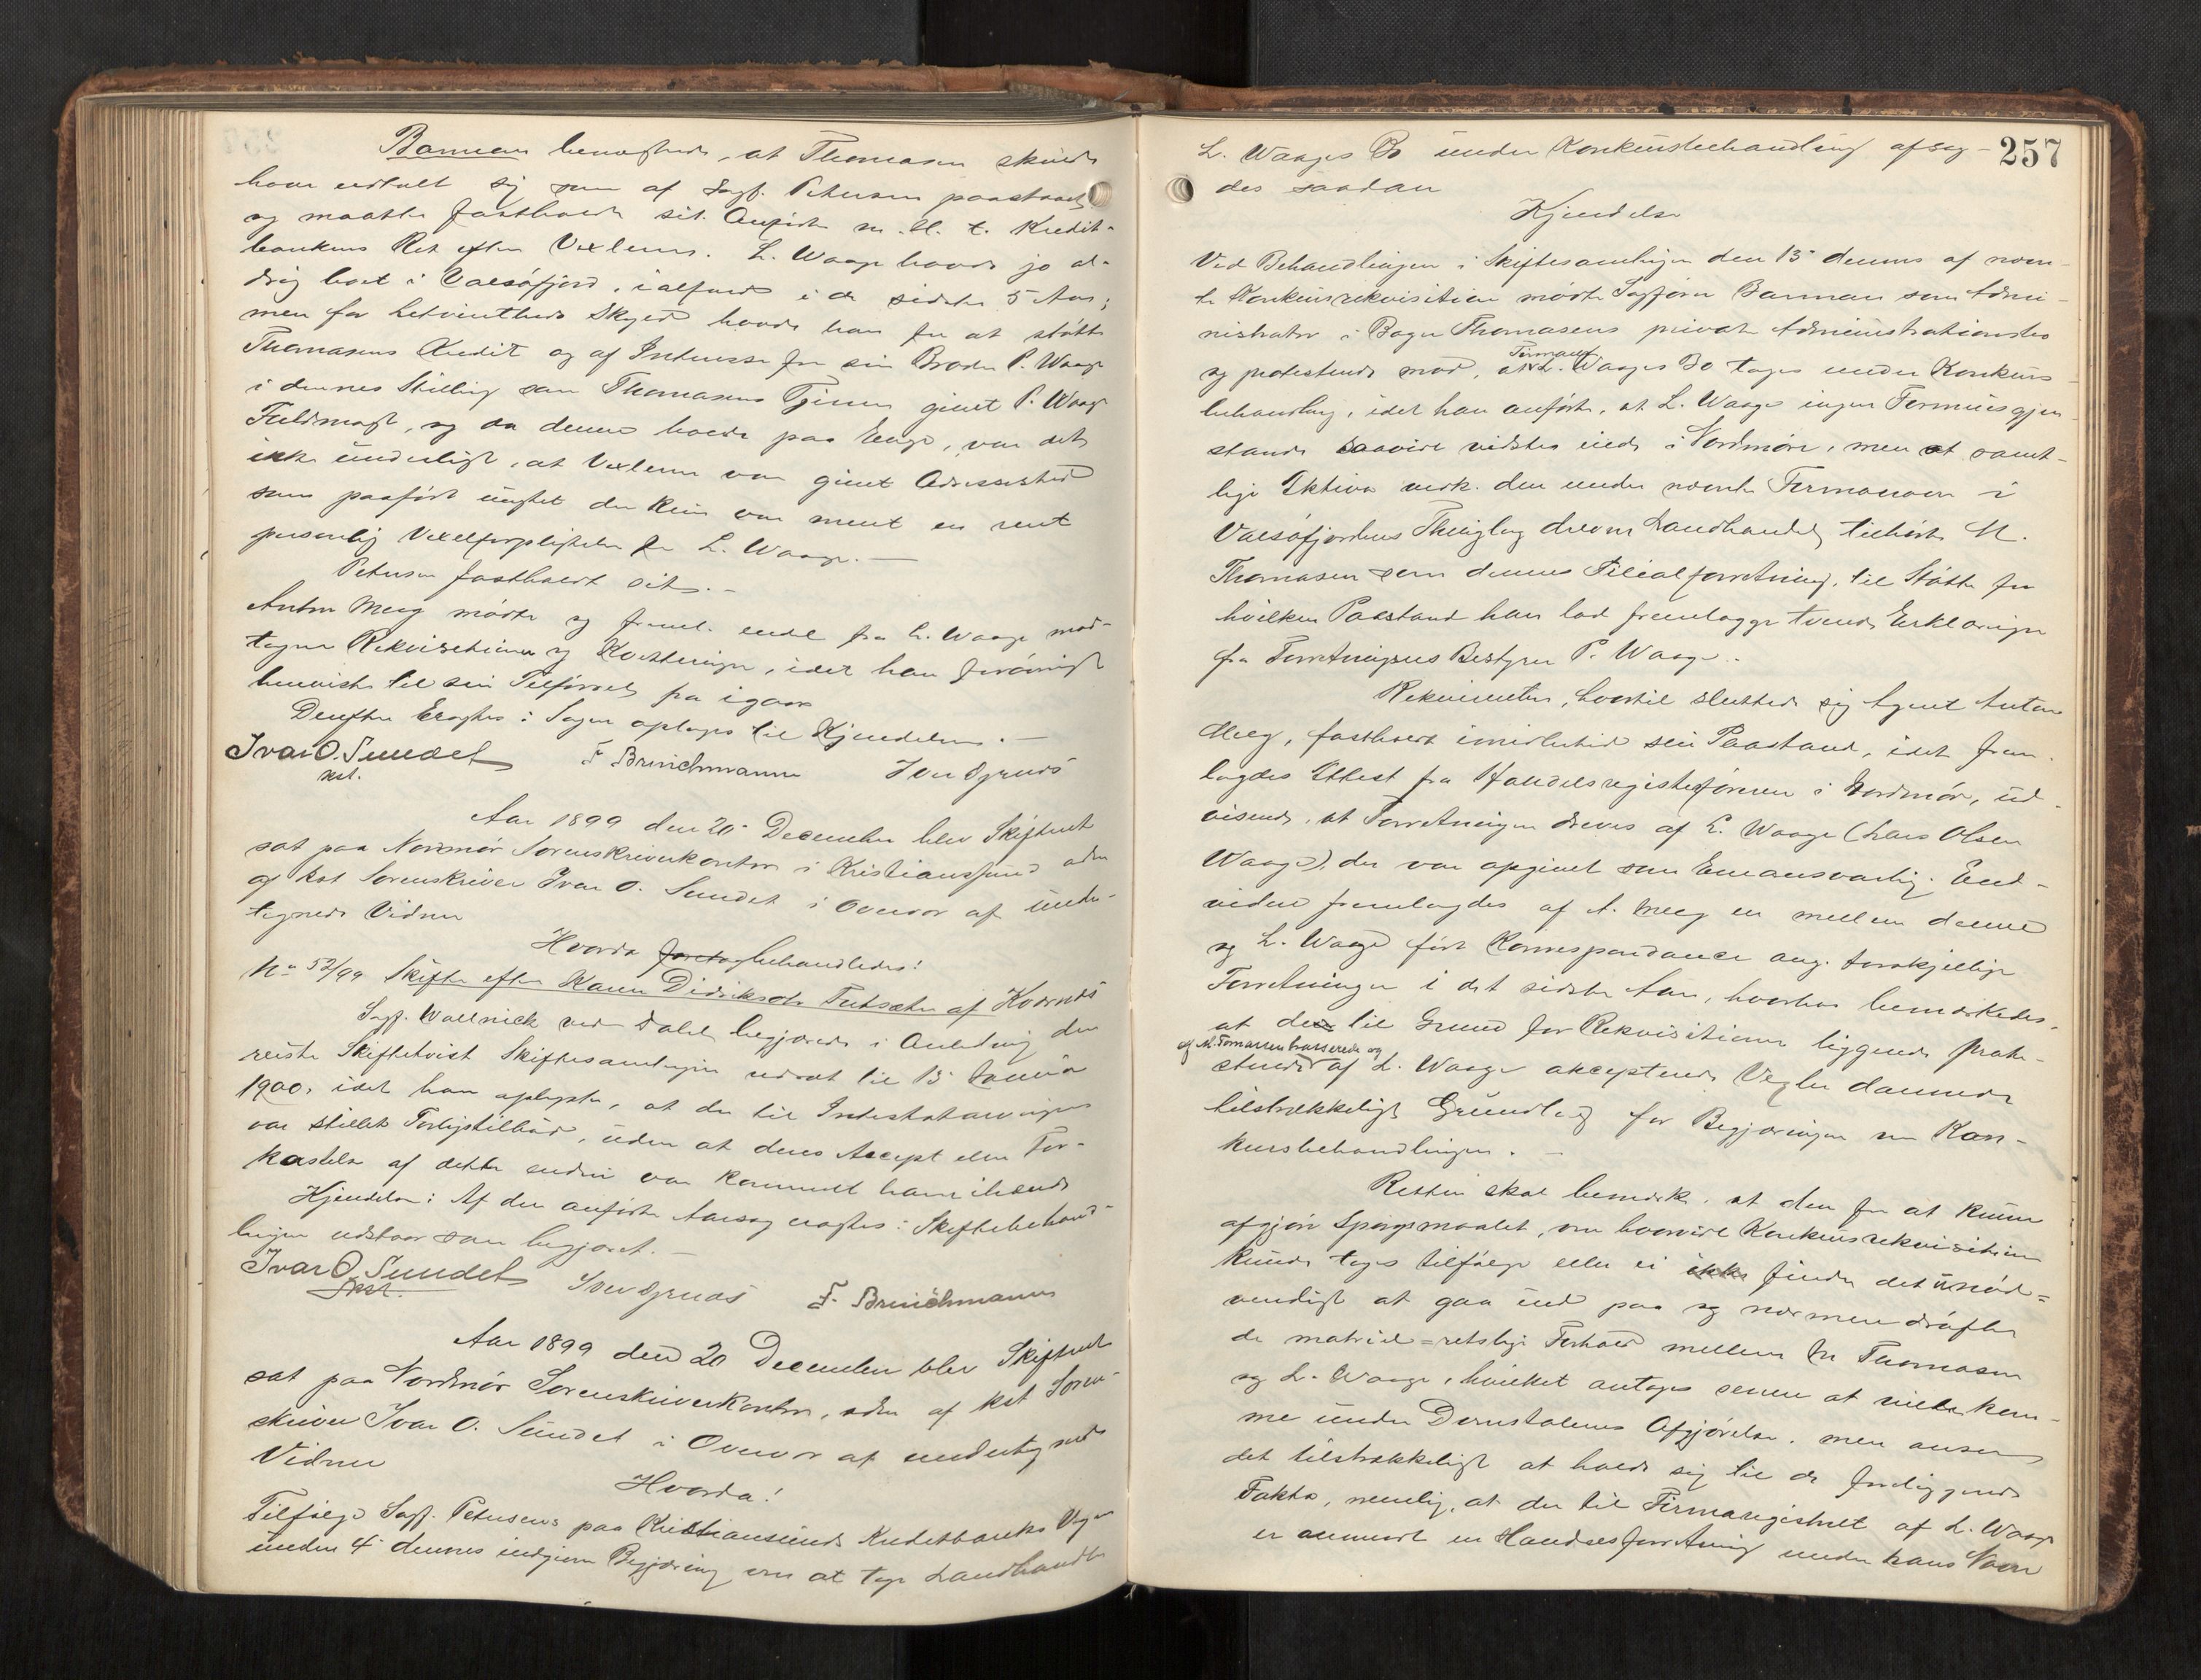 Barman benegtede, at Thomasen skulde
have udtalt sig som af Sagf. Petersen paastaaet
og maatte fastholde sit Anførte m. H. t. Kredit-
bankens Ret efter Vexlerne. L. Waage havde jo al-
drig boet i Valsøfjord, ialfald i de sidste 5 Aar;
men for Letvinthed Skyld havde han for at støtte
Thomasens Kredit og af Interesse for sin Broder P. Waage
i dennes Stilling som Thomasens Tjener givet P. Waage
Fuldmagt, og da denne boede paa Enge, var det
ikke underligt, at Vexlerne var givet Adressested
som paaført uagtet der kun var ment en rent
personlig Vexelforpligtelse for L. Waage.—
Petersen fastholdt sit.—
Anton Meeg mødte og freml. endel fra L. Waage mod-
tagne Rekvisitioner og Kvitteringer, idet han forøvrigt
henviste til sin Tilførsel fra igaar
Derefter Eragtes: Sagen optages til Kjendelse.—
Ivar O. Sundet F Brinchmann Iver Grends
kst.
Aar 1899 den 20 December blev Skifteret
sat paa Nordmør Sorenskriverkontor i Kristianssund adm
af kst Sorenskriver Ivar O. Sundet i Overvær af under-
tegnede Vidner
Hvorda foretog behandledes:
No 52/99 Skifte efter Karen Didriksdr. Tutsæter af Kvernes
Sagf. Wallnick ved Dahl begjærede i Anledning den
reiste Skiftetvist Skiftesamlingen udsat til 15 Januar
1900, idet han oplyste, at der til Intestatarvingerne
var stillet Forligstilbud, uden at deres Accept eller For-
kastelse af dette endnu var kommet ham ihænde
Kjendelse: Af den anførte Aarsag eragtes: Skiftebehand-
lingen udstaar som begjæret.—
Ivar O. Sundet Iver Grends F. Brinchmann
kst.
Aar 1899 den 20 December blev Skifteret
sat paa Nordmør Sorenskriverkontor, adm af kst Soren-
skriver Ivar O. Sundet i Overvær af undertegnede
Vidner
Hvorda!
Tilfølge Sagf. Petersens paa Kristianssunds Kreditbanks Vegne
under 4 dennes indgivne Begjæring om at tage Landhandler
257
L. Waages Bo under Konkursbehandling afsag-
des saadan
Kjendelse
Ved Behandlingen i Skiftesamlingen den 15 dennes af nævn-
te Konkursrekvisition mødte Sagfører Barman som Admi-
nistrator i Bager Thomasens private Administrationsbo
og protesterede mod, at Firmaet L. Waages Bo tages under Konkurs-
behandling, idet han anførte, at L. Waage ingen Formuesgjen-
stande saavidt vidstes eiede i Nordmøre, men at samt-
lige Aktiva vedk. den under nævnte Firmanavn i
Valsøfjordens Thinglag drevne Landhandel tilhørte M.
Thomasen som dennes Filialforretning, til Støtte for
hvilken Paastand han lod fremlægge tvende Erklæringer
fra Forretningens Bestyrer P. Waage.
Rekvirenten, hvortil sluttede sig Agent Anton
Meeg, fastholdt imidlertid sin Paastand, idet frem-
lagdes Attest fra Handelsregisterføreren i Nordmør, ud-
visende, at Forretningen dreves af L. Waage (Lars Olsen
Waage), der var opgivet som Eneansvarlig. End-
videre fremlagdes af A. Meeg en mellem denne
og L. Waage ført Korrespondance ang. forskjellige
Forretninger i det sidste Aar, hvorhos bemærkedes,
at den til Grund for Rekvisitionen liggende prote-
sterede af M. Tomassen trasserede og af L. Waage aksepterede Vexler dannede
tilstrækkeligt Grundlag for Begjæringen om Kon-
kursbehandlingen.—
Retten skal bemærke, at den for at kunne
afgjøre Spørgsmaalet, om hvorvidt Konkursrekvisitionen
kunde tages tilfølge eller ei ikke finder det unød-
vendigt at gaa ind paa og nærmere drøfte
de materiel-retslige Forhold mellem M Thomasen
og L. Waage, hvilket antages senere at ville kom-
me under Domstolenes Afgjørelse, men anser
det tilstrækkeligt at holde sig til de foreliggende
Fakta, nemlig, at der til Firmaregistret af L. Waage
er anmeldt en Handelsforretning under hans Navn